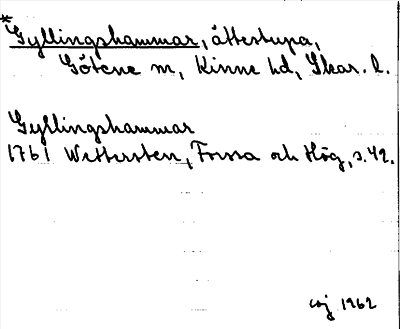 * Gyllingshammar, ättestupa,
Götene sn, Kinne hd, Skar. l.
Gyllingshammar
1761 Wettersten, Forssa och Hög, s. 42.
1962